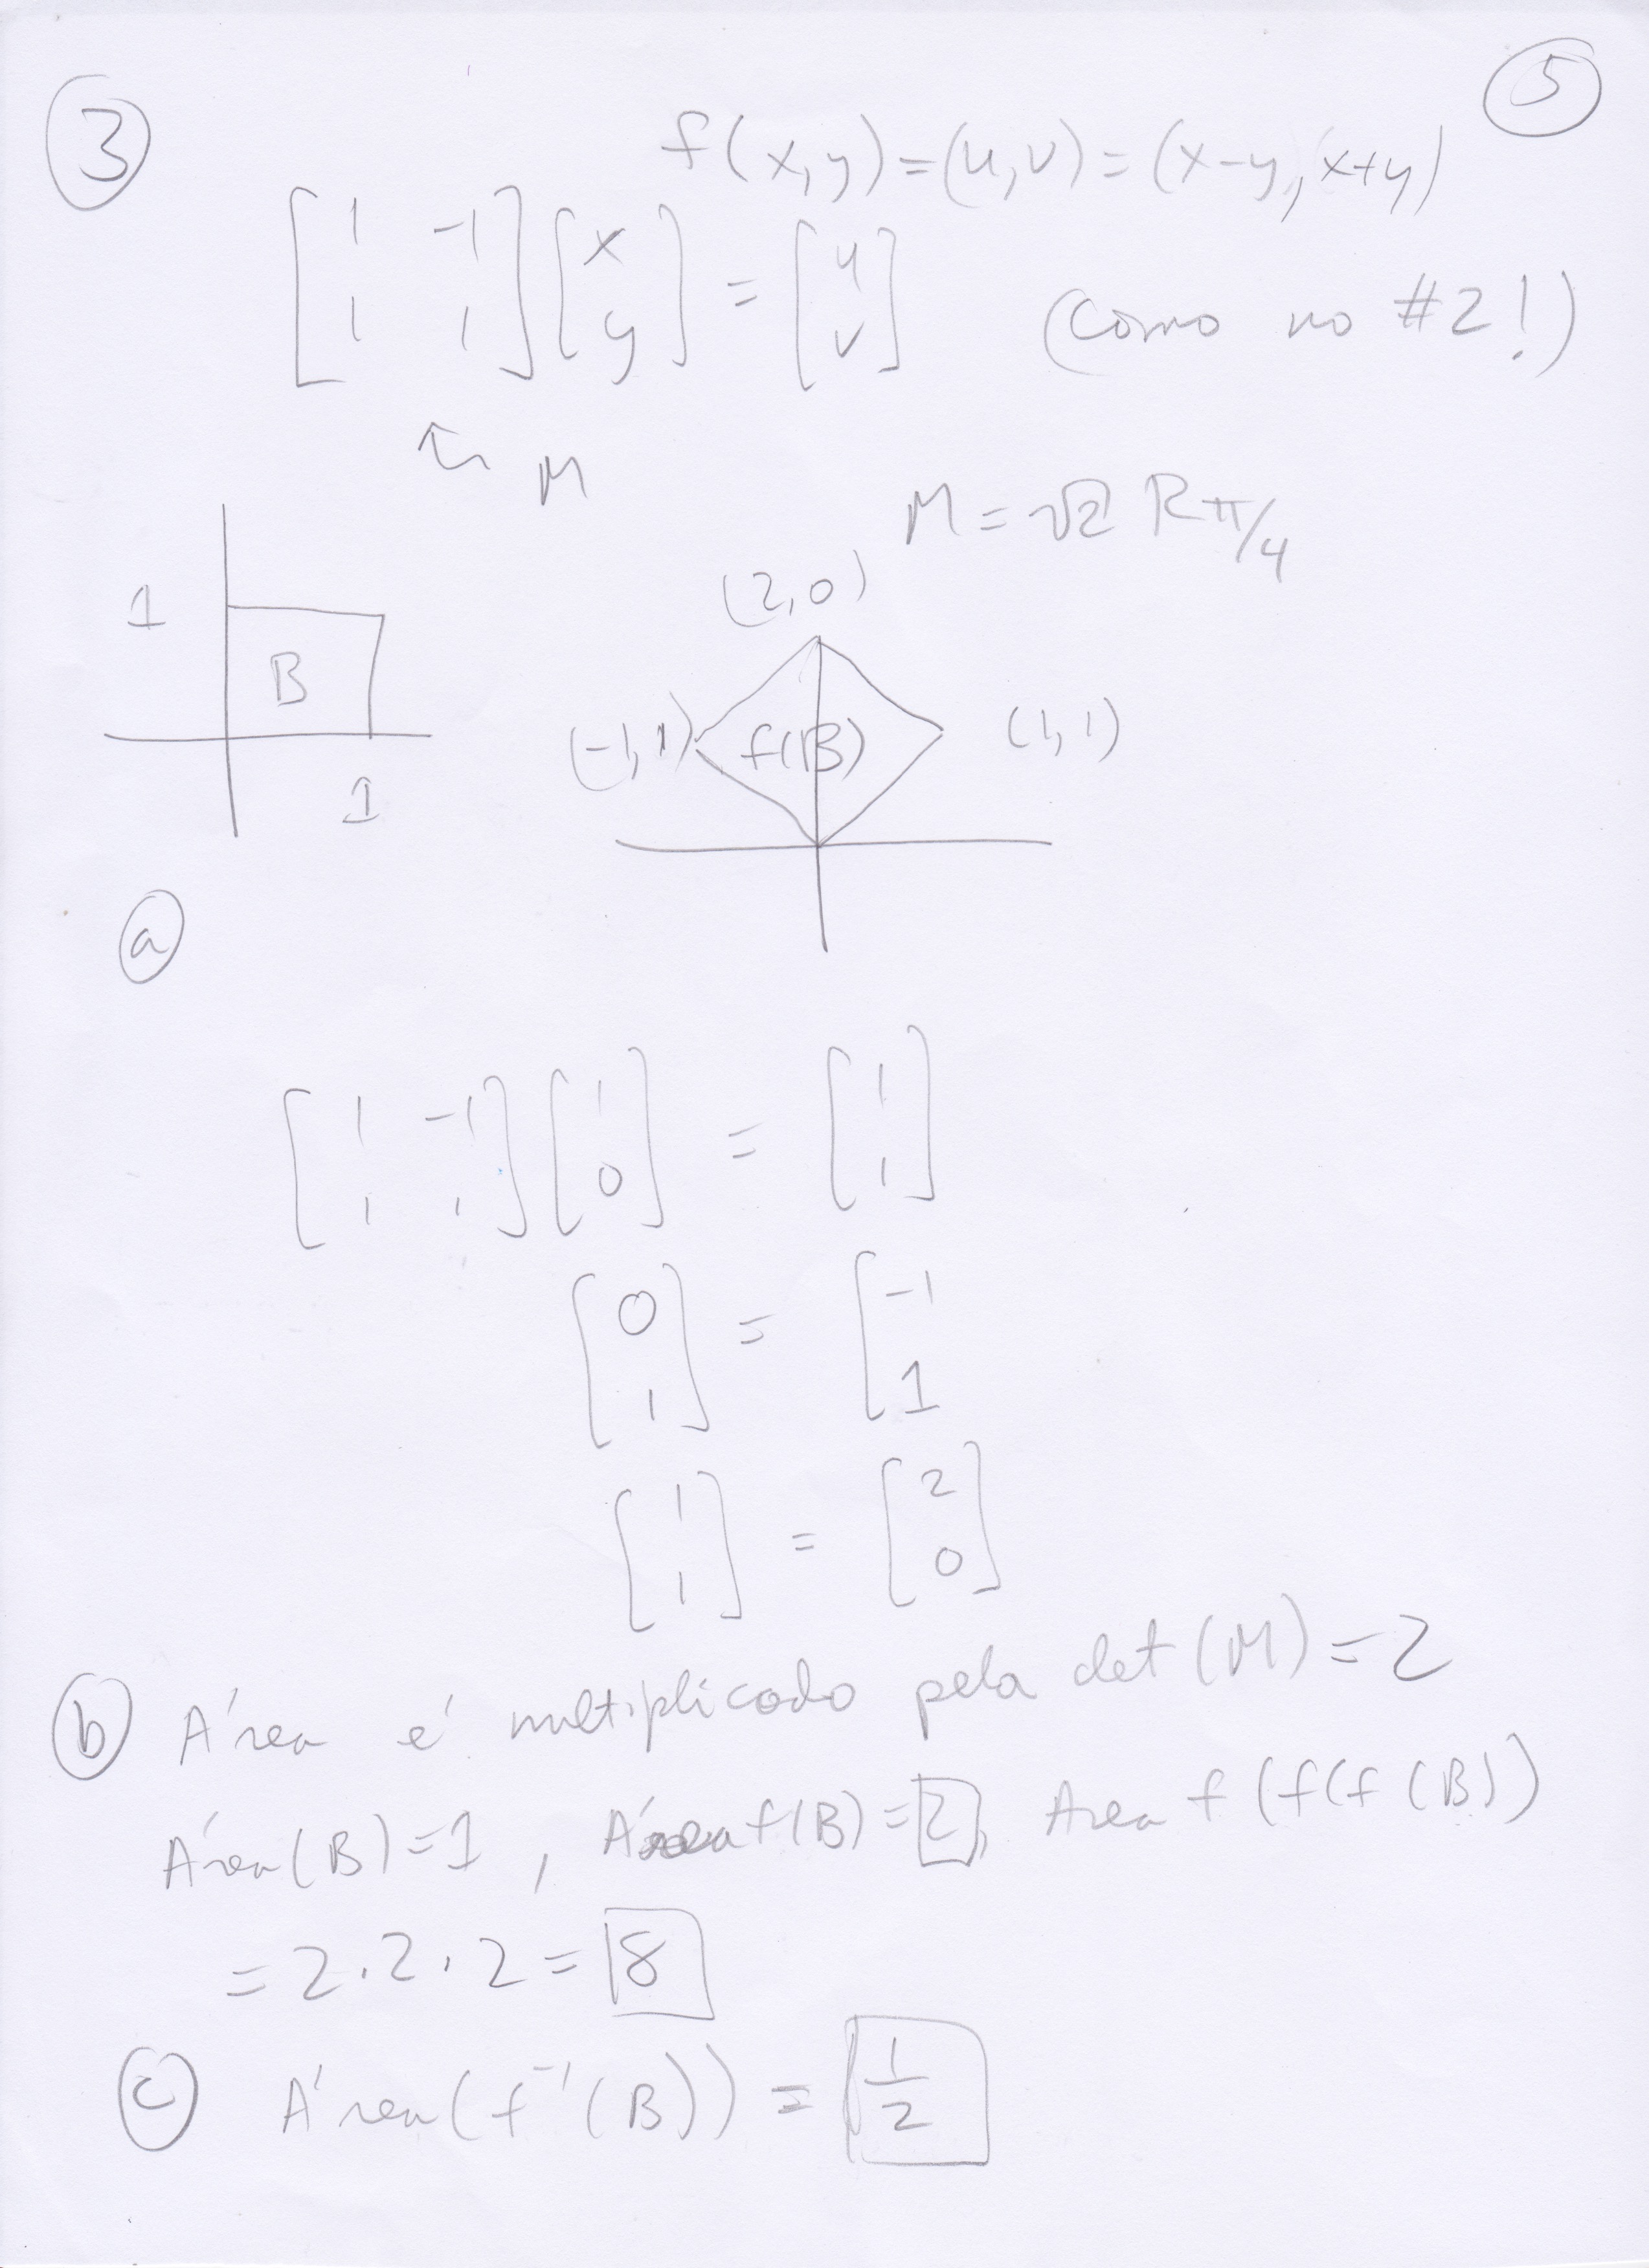 3
5
f(x,y)=(u,v)=(x-y, x+y)
[1 -1
1 1] [x
y] = [u
v] (como no #2!)
↖ M
M = √2 Rπ/4
1
B
1
(2,0)
(-1,1)
f(B)
(1,1)
a
[1 -1
1 1] [1
0] = [1
1]
[0
1] = [-1
1
[1
1] = [2
0]
b Área é multiplicado pela det(M)=2
Área(B)=1, Área f(B)=2, Area f(f(f(B))
=2.2.2=8
c Área(f⁻¹(B)) = 1/2